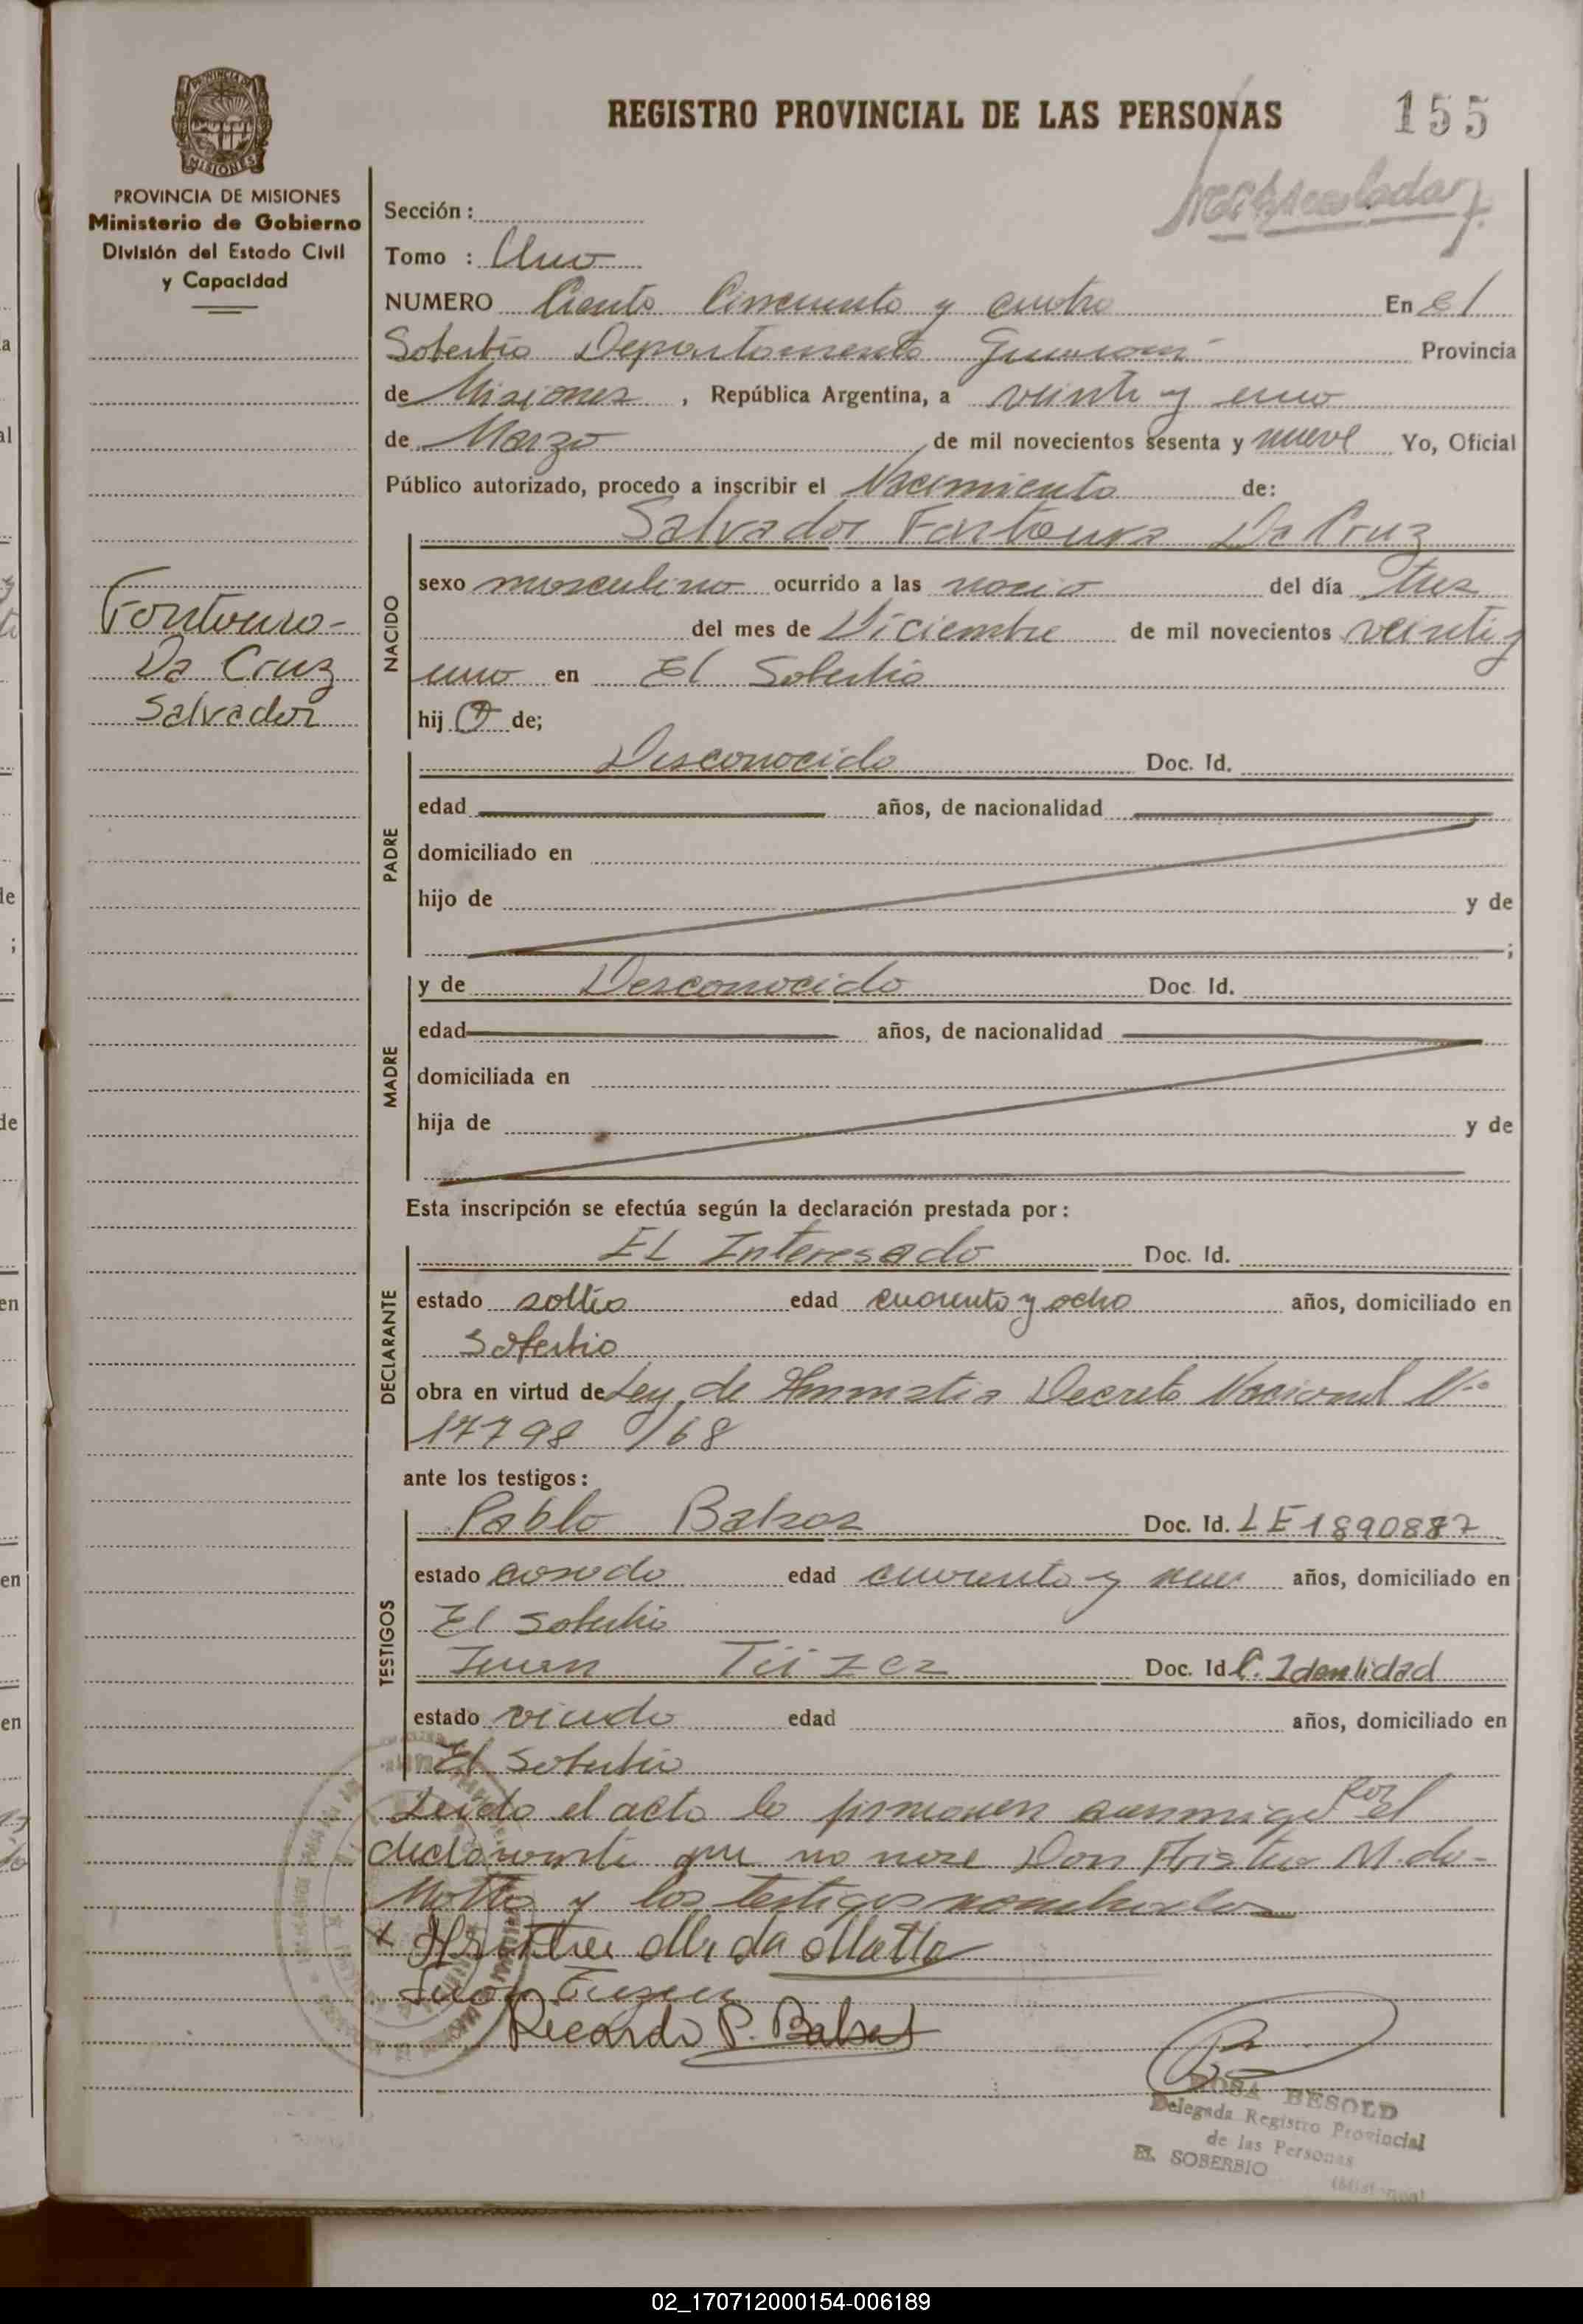 REGISTRO PROVINCIAL DE LAS PERSONAS
155
PROVINCIA DE MISIONES
Ministerio de Gobierno
División del Estado Civil
y Capacidad
Sección :
Tomo : Uno
NUMERO Ciento Cincuenta y cuatro En El
Soberbio Departamento Guarani Provincia
de Misiones , República Argentina, a veinte y uno
de Marzo de mil novecientos sesenta y nueve Yo, Oficial
Público autorizado, procedo a inscribir el Nacimiento de:
Salvador Fontoura Da Cruz
Fontoura-
Da Cruz
Salvador
NACIDO
sexo masculino ocurrido a las del día tres
del mes de Diciembre de mil novecientos veinti y
uno en El Soberbio
hij o de;
PADRE
Desconocido Doc. Id.
edad años, de nacionalidad
domiciliado en
hijo de y de
;
MADRE
y de Desconocido Doc. Id.
edad años, de nacionalidad
domiciliada en
hija de y de
Esta inscripción se efectúa según la declaración prestada por :
DECLARANTE
El Interesado Doc. Id.
estado edad cuarenta y ocho años, domiciliado en
Soberbio
obra en virtud de Ley de Amnistia Decreto Nacional Nº
17798 /68
ante los testigos :
TESTIGOS
Pablo Doc. Id. LE 1890887
estado casado edad cuarenta y años, domiciliado en
El Soberbio
Juan Doc. Id C. Identidad
estado viudo edad años, domiciliado en
El Soberbio
Leida el acta la firman conmigo por el
declarante que no Don M. da-
Motta y los testigos nombrados
x da Motta
Ricardo P.
ROSA BESOLD
Delegada Registro Provincial
de las Personas
EL SOBERBIO
(Misiones)
02_170712000154-006189